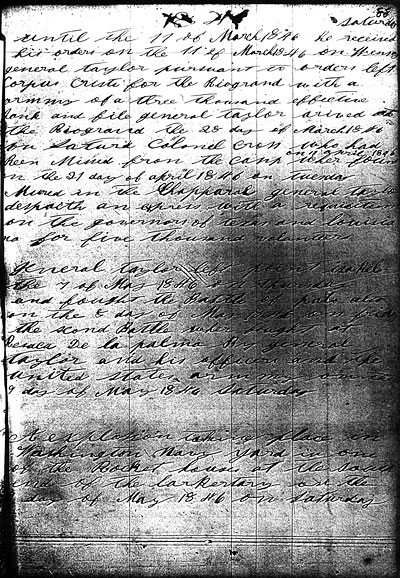 85
Saturday
until the 11 of March 1846 he received
his orders on the 11 of March 1846 on
general taylor pursuant to orders left
Corpus Criste for the Riogrand with a
armmy of a three thousand effective
rank and file general taylor arived at
the Riogrand the 28 day of March 1846
on Saturd Colonel Cross who had
Been Missed from the camp
on the 21 day of april 1846 on tuesday
in the Chapparal general taylor
despacth an express with a requisition
on the governors of texas and Louisia
na for five thousand volunteers
general taylor left point isabel
the 7 of May 1846 on thursday
and fought the Battle of palo alto
on the 8 day of May 1846 on friday
the second Battle was fought at
Resaca De la palma By general
taylor and his officers and the
united state army on the
9 day of May 1846 Saturday
A explosion taking place in
Washington Navy Yard in one
of the Rocket houses at the South
end of the on the
day of May 1846 on Saturday